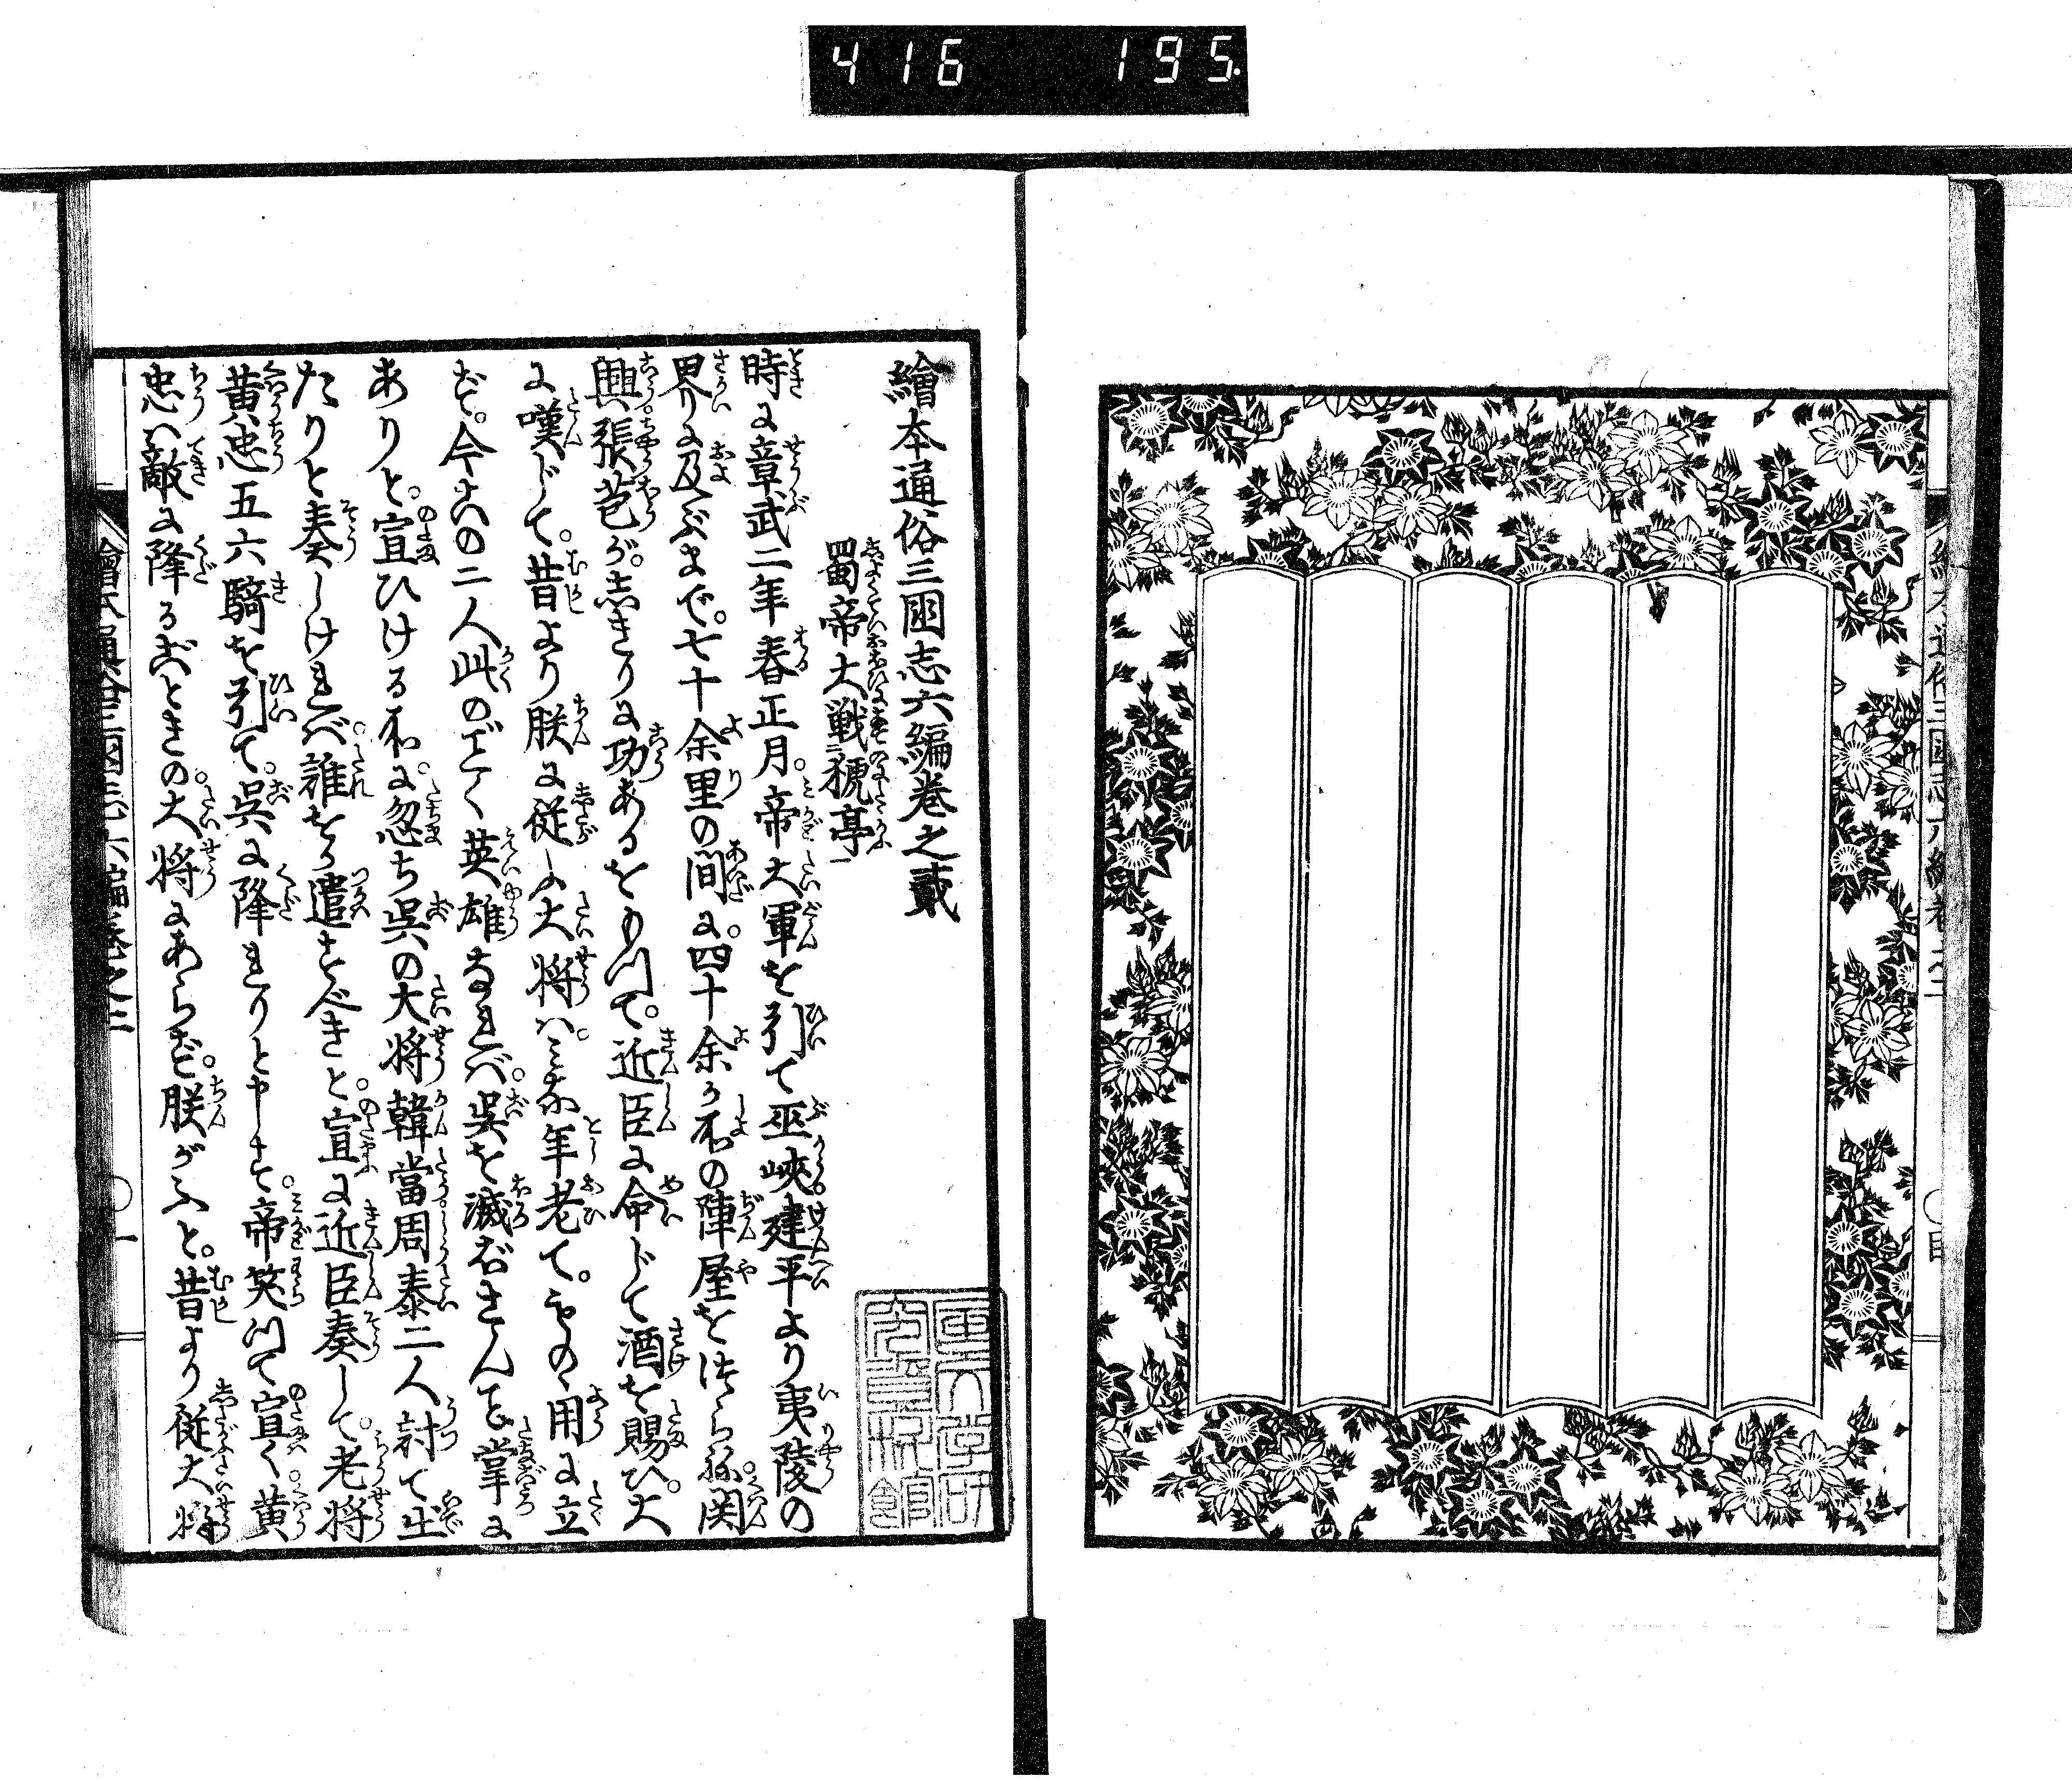 416 195
繪本通俗三國志六編巻之貳
蜀帝大戦猇亭
時に章武二年春正月。帝大軍を引て巫峡建平より夷陵の
界に及ぶまで。七十余里の間に。四十余ヶ所の陣屋をつらね。関
興張苞が。しきりに功あるをもつて。近臣に命じて酒を賜ひ。大
に嘆じて。昔より朕に従ふ大将ハ。ミな年老て。ものゝ用に立
ず。今この二人此のごとく英雄なれバ。呉を滅ぼさんこと掌に
ありと。宣ひける所に。忽ち呉の大将韓當周泰二人討て出
たりと奏しけれバ。誰をか遣すべきと。宣に近臣奏して。老将
黄忠五六騎を引て。呉に降れりと申す。帝笑つて宣く。黄
忠ハ敵に降るほどの。大将にあらず。朕がふと。昔より従大将
繪本通俗三國志六編巻之二
〇一